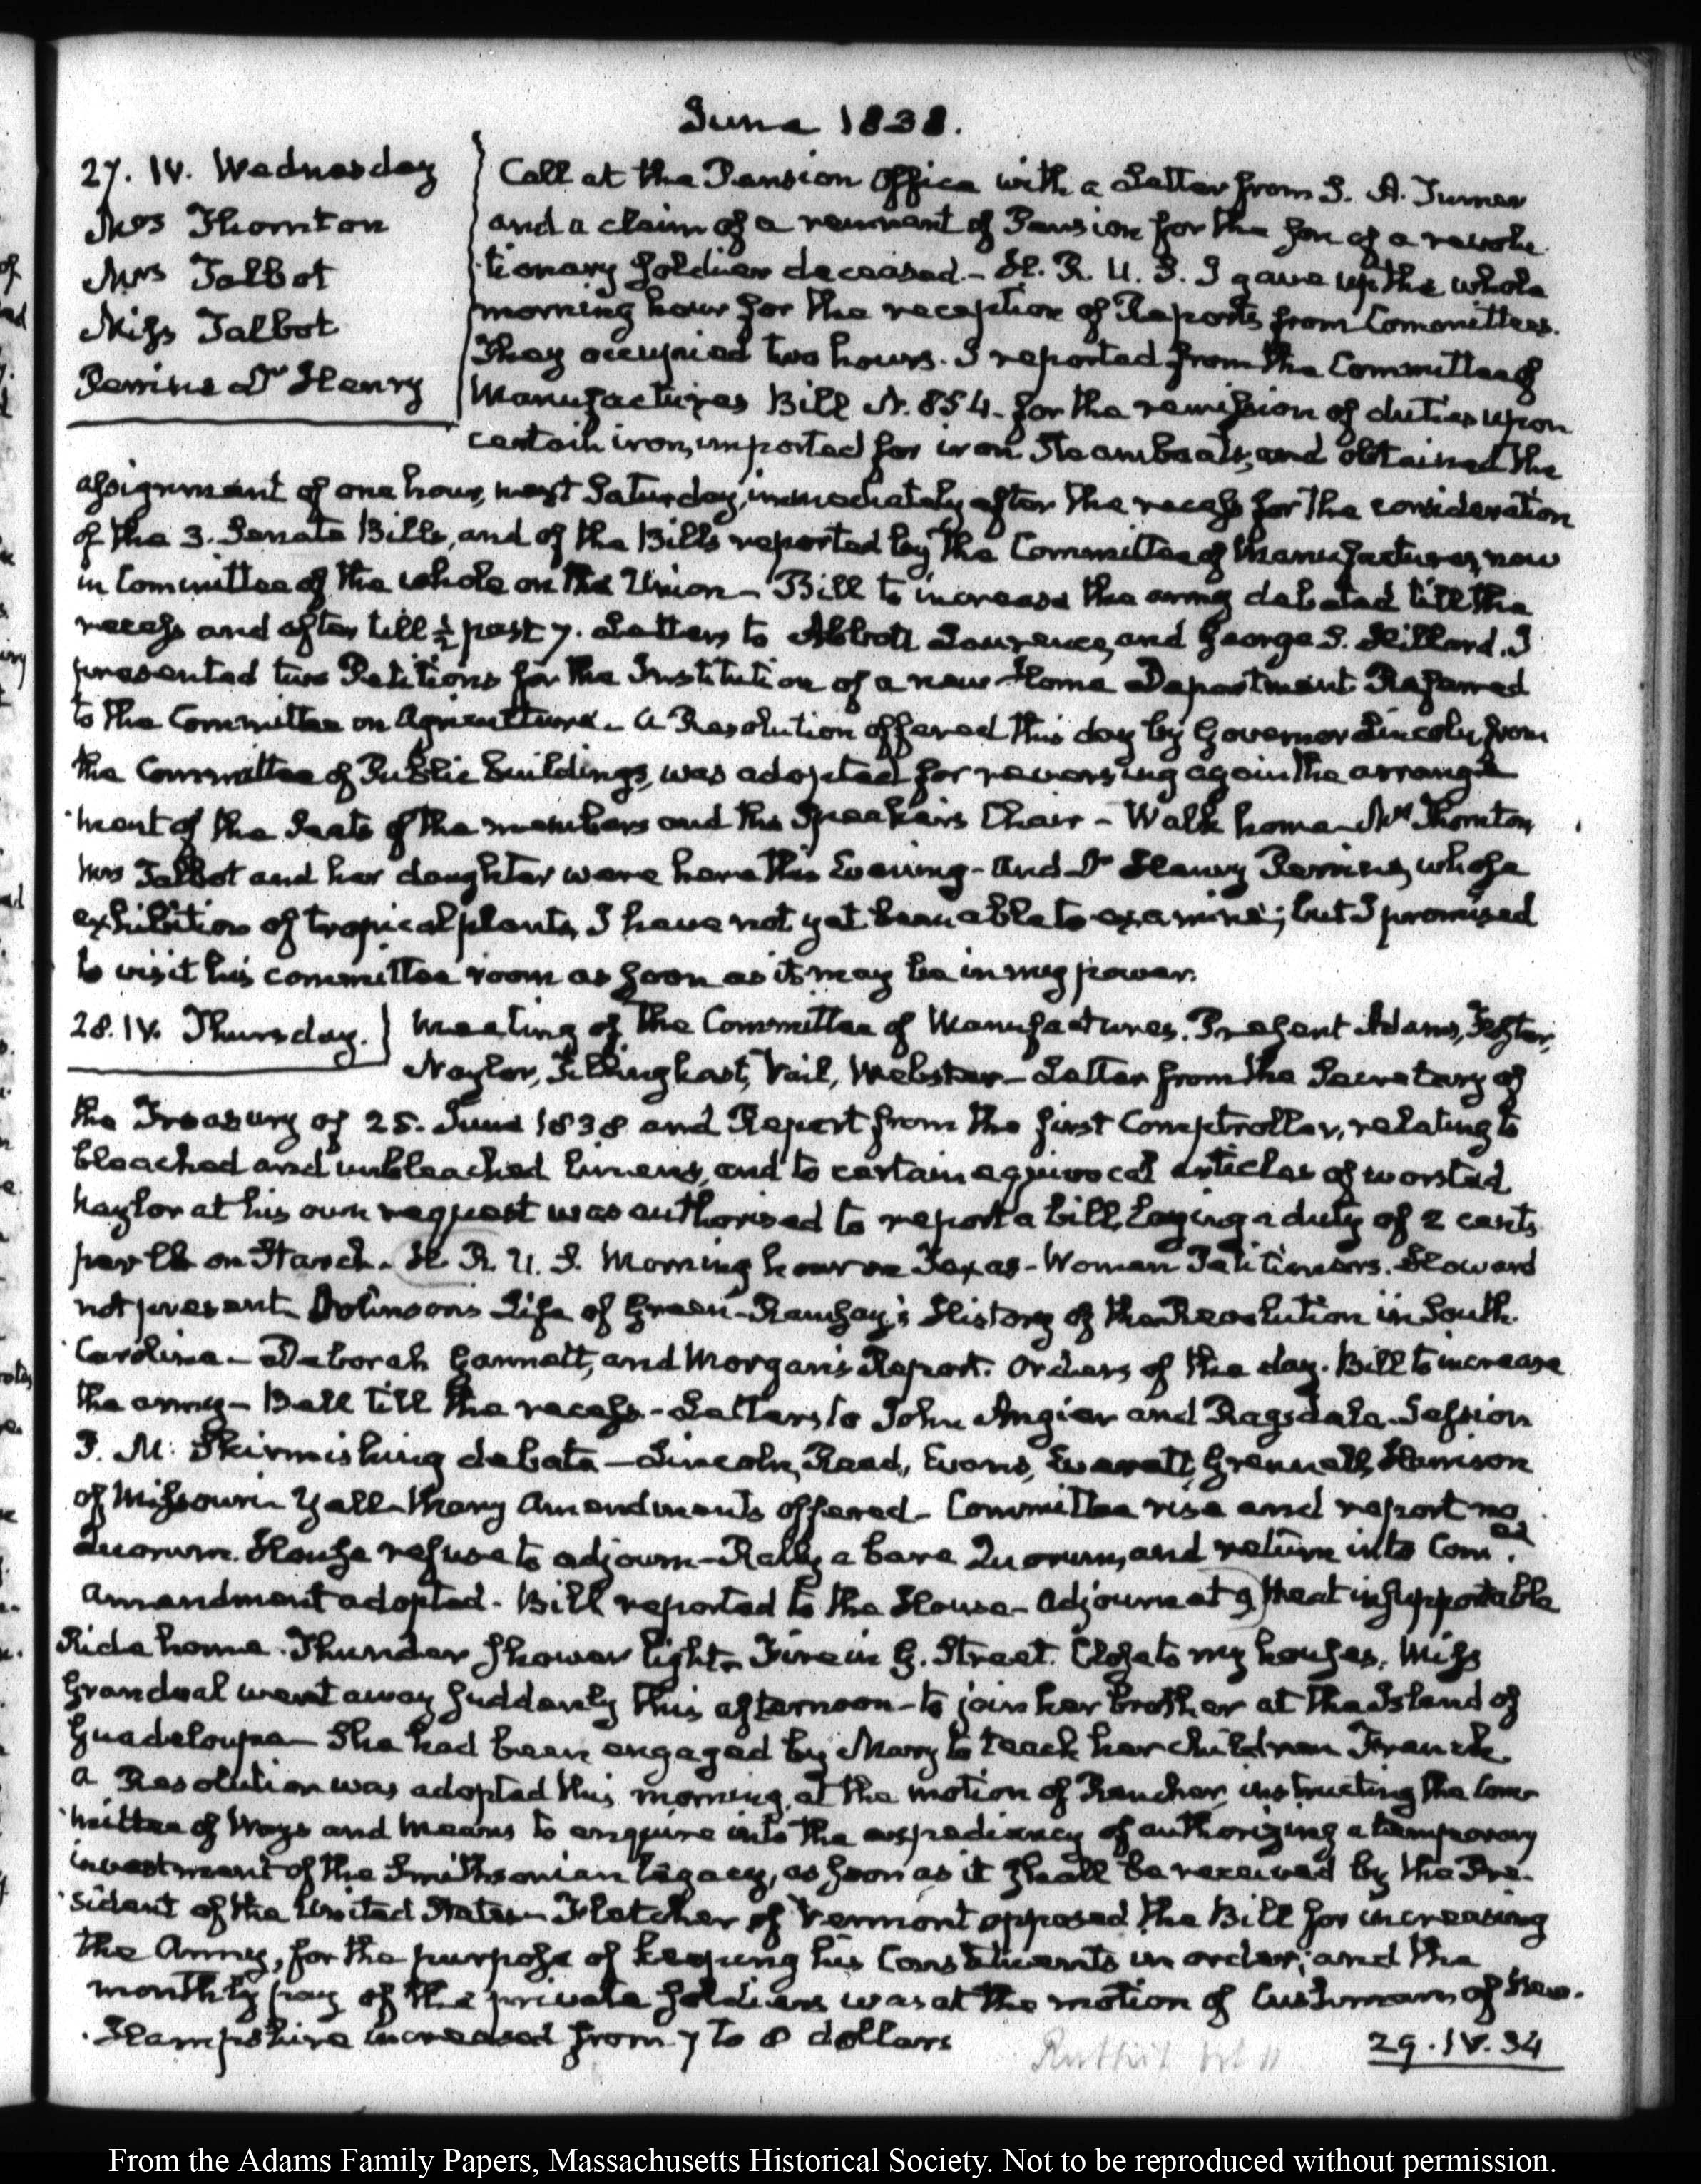 June 1838.
27. IV. Wednesday
Mrs Thornton
Mrs Talbot
Miss Talbot
Perrine Dr Henry
Call at the Pension Office with a Letter from S. A. Turner
and a claim of a remnant of Pension for the son of a revolu-
tionary soldier deceased.- H. R. U. S. I gave up the whole
morning hour for the reception of Reports from Committees.
They occupied two hours. I reported from the Committee of
Manufactures Bill N. 854. for the remission of duties upon
certain iron, imported for iron Steamboats, and obtained the
assignment of one hour, next Saturday, immediately after the recess for the consideration
of the 3. Senate Bills, and of the Bills reported by the Committee of Manufactures, now
in Committee of the whole on the Union - Bill to increase the army debated till the
recess and after till ½ past 7. Letters to Abbott Lawrence, and George S. Hillard. I
presented two Petitions for the Institution of a new Home Department. Referred
to the Committee on Agriculture. A Resolution offered this day by Governor Lincoln, from
the Committee of Public buildings, was adopted for reversing again the arrange-
ment of the Seats of the members and the Speaker's Chair - Walk home - Mrs Thornton,
Mrs Talbot and her daughter were here this Evening - and Dr Henry Perrine, whose
exhibition of tropical plants, I have not yet been able to examine; but I promised
to visit his committee room as soon as it may be in my power.
28. IV. Thursday.
Meeting of the Committee of Manufactures. Present Adams, Foster,
Naylor, Tillinghast, Vail, Webster - Letter from the Secretary of
the Treasury of 25. June 1838 and Report from the first Comptroller, relating to
bleached and unbleached linens, and to certain equivocal articles of worsted.
Naylor at his own request was authorised to report a bill, laying a duty of 2 cents
per lb on Starch. H. R. U. S. Morning hour on Texas - Women Petitioners. Howard
not present. Johnson's Life of Green - Ramsay's History of the Revolution in South-
Carolina - Deborah Gannett, and Morgan's Report. Orders of the day. Bill to increase
the army - Bell till the recess - Letters to John Angier and Ragsdale. Session
P. M. Skirmishing debate - Lincoln, Reed, Evans, Everett, Grennell, Harrison
of Missouri. Yell - Many Amendments offered - Committee rise and report no
Quorum. House refuse to adjourn - Rally a bare Quorum, and return into Comee.
Amendment adopted - Bill reported to the House - Adjourn at 9, Heat insupportable
Ride home - Thunder Shower light. Fire in G. Street. Close to my houses. Miss
Grandval went away suddenly this afternoon - to join her brother at the Island of
Guadeloupe - She had been engaged by Mary to teach her children French.
A Resolution was adopted this morning, at the motion of Rencher, instructing the Com-
mittee of Ways and Means to enquire into the expediency of authorizing a temporary
investment of the Smithsonian legacy, as soon as it shall be received by the Pre-
sident of the United States - Fletcher of Vermont opposed the Bill for increasing
the Army, for the purpose of keeping his Constituents in order; and the
monthly pay of the private soldiers was at the motion of Cushman of New-
Hampshire increased from 7 to 8 dollars
29. IV. 34
From the Adams Family Papers, Massachusetts Historical Society. Not to be reproduced without permission.